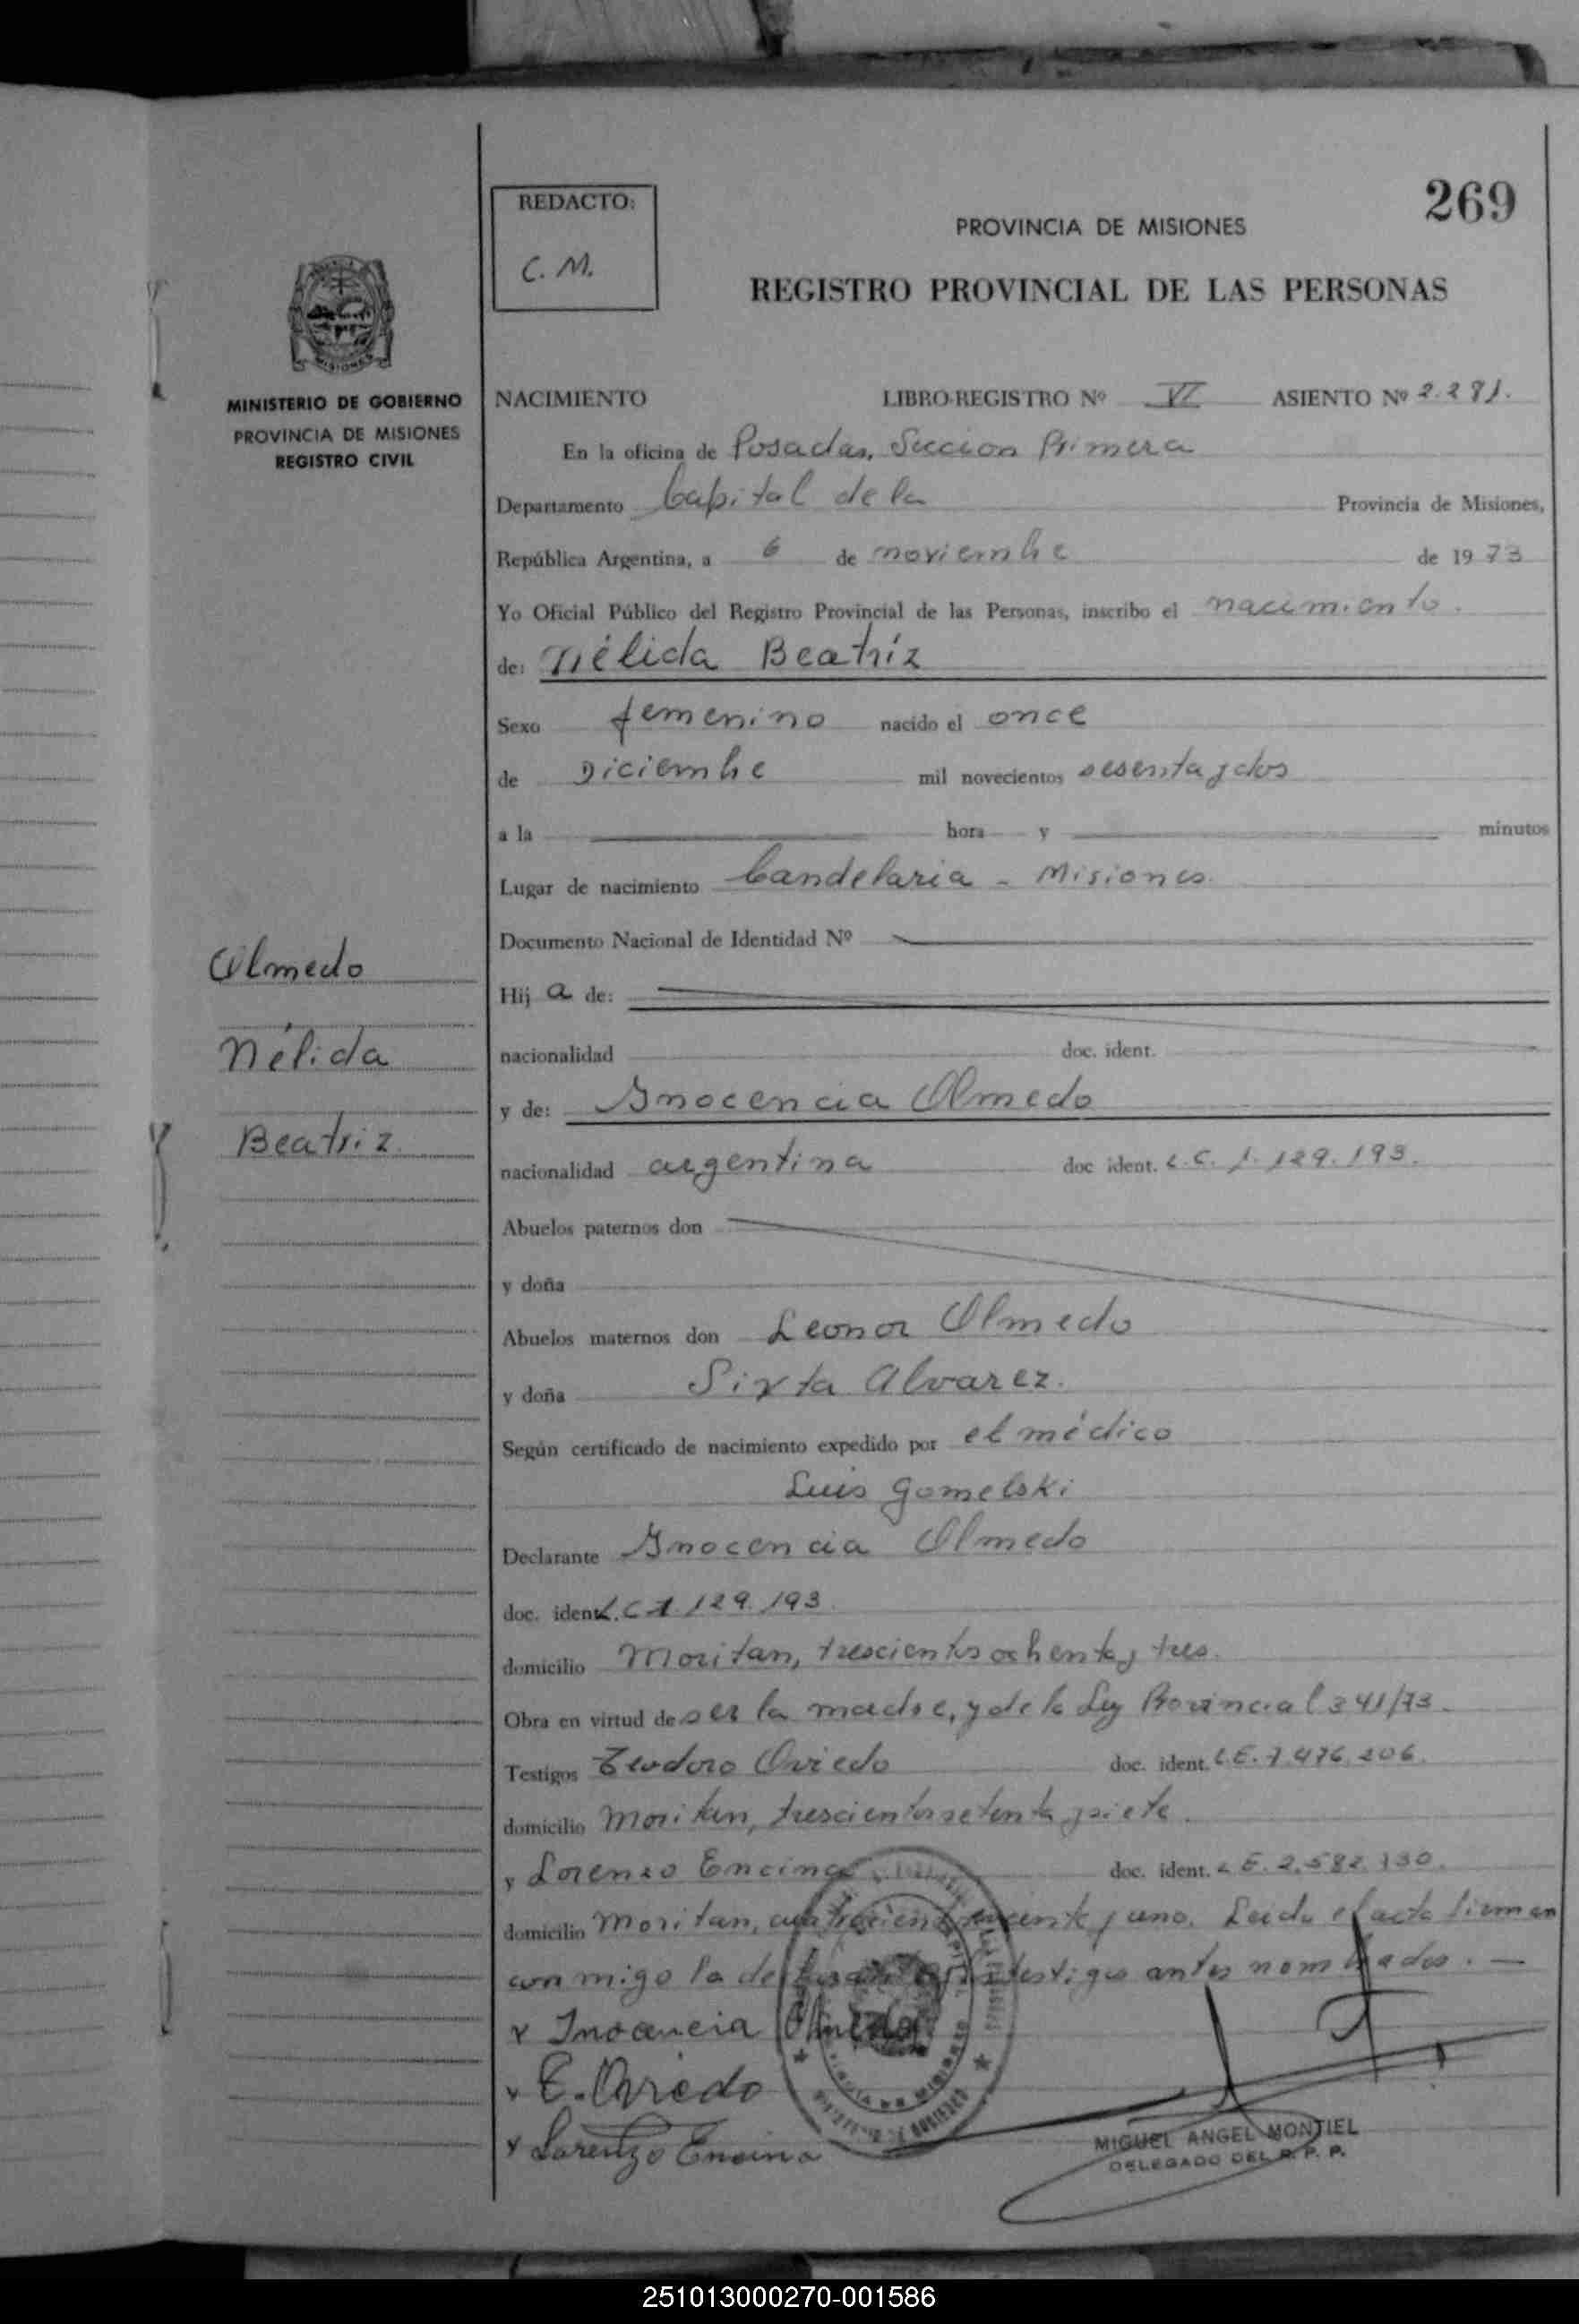 269
REDACTO:
C. M.
PROVINCIA DE MISIONES
REGISTRO PROVINCIAL DE LAS PERSONAS
MINISTERIO DE GOBIERNO
PROVINCIA DE MISIONES
REGISTRO CIVIL
Olmedo
Nélida
Beatriz
NACIMIENTO LIBRO-REGISTRO Nº VI ASIENTO Nº 2.281.
En la oficina de Posadas, Seccion Primera
Departamento Capital de la Provincia de Misiones,
República Argentina, a 6 de noviembre de 1973
Yo Oficial Público del Registro Provincial de las Personas, inscribo el nacimiento.
de: Nélida Beatríz
Sexo femenino nacido el once
de Diciembre mil novecientos sesenta y dos
a la hora y minutos
Lugar de nacimiento Candelaria - Misiones.
Documento Nacional de Identidad Nº
Hij a de:
nacionalidad doc. ident.
y de: Inocencia Olmedo
nacionalidad argentina doc ident. L.C. 1.129.193.
Abuelos paternos don
y doña
Abuelos maternos don Leonor Olmedo
y doña Sixta Alvarez.
Según certificado de nacimiento expedido por el médico
Luis Gomelski
Declarante Inocencia Olmedo
doc. ident. L.C 1.129.193.
domicilio Moritan, trescientos ochenta y tres.
Obra en virtud de ser la madre, y de la Ley Provincial 341/73.
Testigos Teodoro Oviedo doc. ident. L.E. 7.476.206.
domicilio Moritan, trescientos setenta y siete.
y Lorenzo Encina doc. ident. L.E. 2.582.130.
domicilio Moritan, y uno. Leida el acta firman
con migo la testigos antes nombrados. —
x Inocencia Olmedo
x T. Oviedo
x Lorenzo Encina
MIGUEL ANGEL MONTIEL
DELEGADO DEL R. P. P.
251013000270-001586